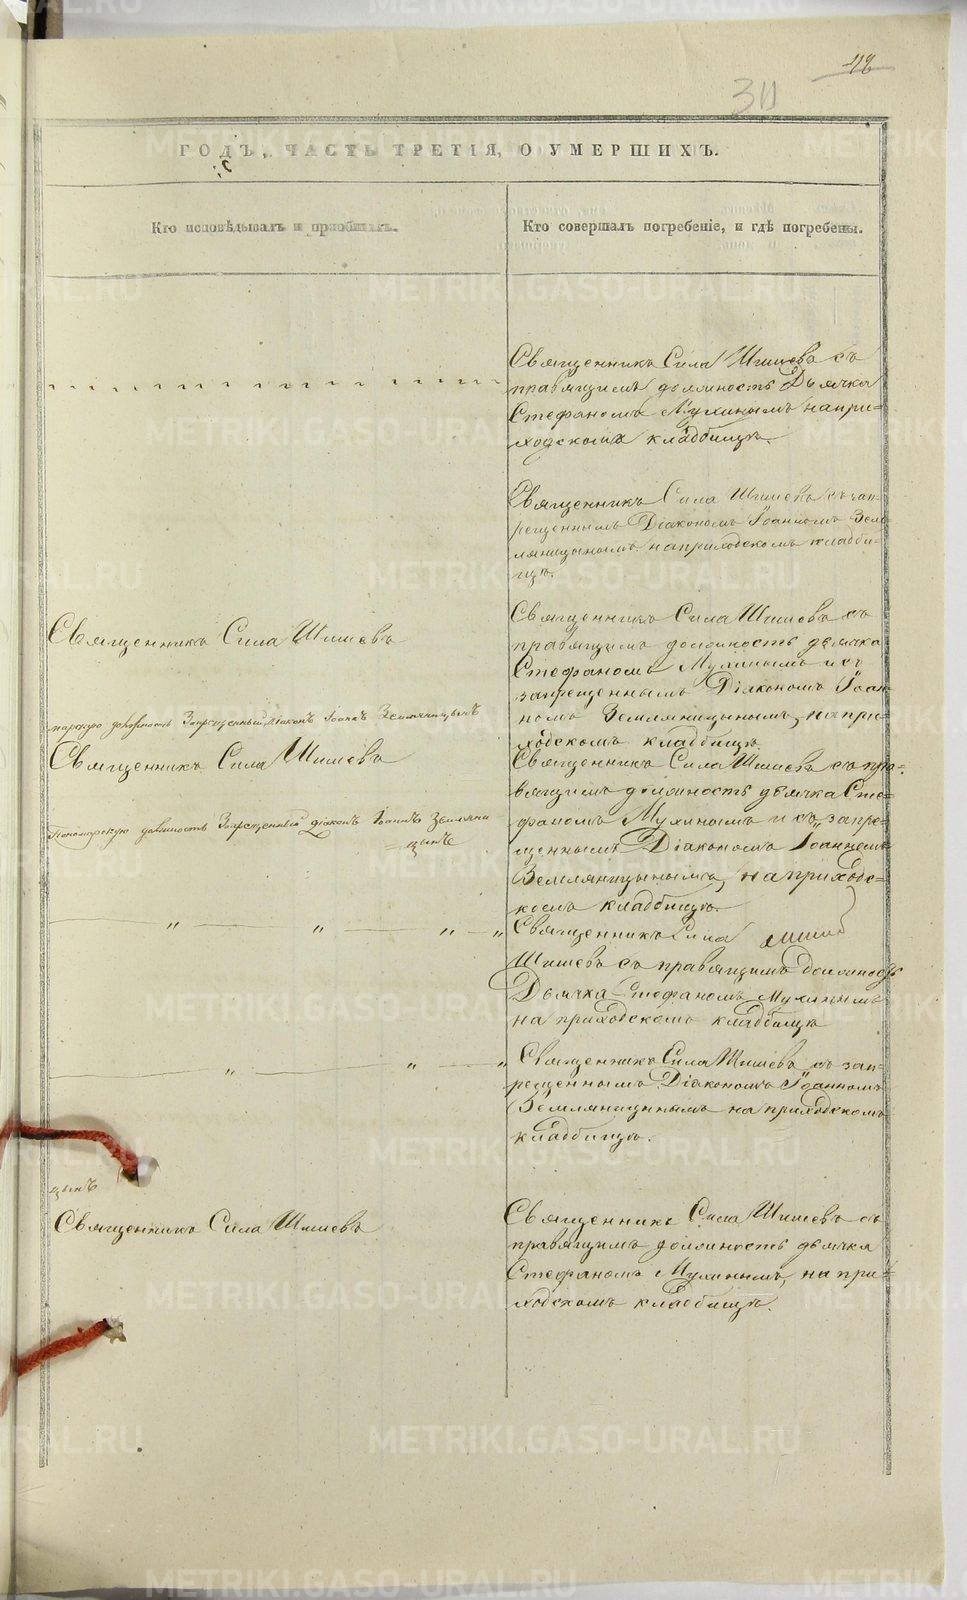 30
ГОДЪ, ЧАСТЬ ТРЕТІЯ, О УМЕРШИХЪ.
Кто исповѣдывалъ и пріобщалъ.
Кто совершалъ погребеніе, и гдѣ погребены.
Священникъ Сила Шишевъ съ
правящимъ должность Дьячка
Стефаномъ Мухинымъ на при=
ходскомъ кладбищѣ.
Священникъ Сила Шишевъ съ зап-
рещеннымъ Діакономъ Іоанномъ Зем-
ляницынымъ на приходскомъ кладби-
щѣ.
Священникъ Сила Шишевъ
Священникъ Сила Шишевъ съ
правящимъ должность дьячка
Стефаномъ Мухинымъ и съ
запрещеннымъ Діакономъ Іоан-
номъ Земляницынымъ, на при-
ходскомъ кладбищѣ.
должность Запрещенный діаконъ Іоаннъ Земляницынъ
Священникъ Сила Шишевъ
Пономарскую должность Запрещенный діаконъ Іоаннъ Земляни
цынъ
Священникъ Сила Шишевъ съ пра-
вящимъ должность дьячка Сте=
фаномъ Мухинымъ и съ запре=
щеннымъ Діакономъ Іоанномъ
Земляницынымъ, на приходс=
комъ кладбищѣ.
" " " "
Священникъ Сила
Шишевъ съ правящимъ должность
Дьячка Стефаномъ Мухинымъ
на приходскомъ кладбищѣ
" " "
Священникъ Сила Шишевъ съ зап-
рещеннымъ Діакономъ Іоанномъ
Земляницынымъ на приходскомъ
кладбищѣ.
цынъ
Священникъ Сила Шишевъ
Священникъ Сила Шишевъ съ
правящимъ должность дьячка
Стефаномъ Мухинымъ, на при-
ходскомъ кладбищѣ.
METRIKI.GASO-URAL.RU